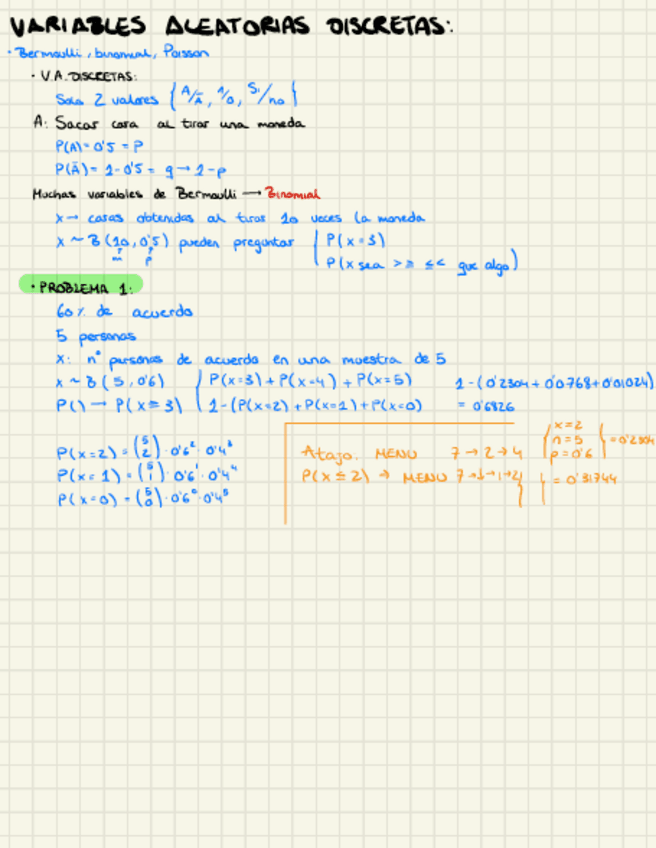 VARIABLES ALEATORIAS DISCRETAS:
· Bermoulli, binomial, Poisson
· V.A. DISCRETAS:
Solo 2 valores { A/Ā, 1/0, Si/no }
A: Sacar cara al tirar una moneda
P(A)= 0'5 = P
P(Ā)= 1-0'5 = q → 1-p
Muchas variables de Bermoulli → Binomial
x → caras obtenidas al tirar 10 veces la moneda
x ~ B (10, 0'5) pueden preguntar { P(x=3)
n p P(x sea > ≥ ≤ < que algo)
· PROBLEMA 1:
60% de acuerdo
5 personas
x: nº personas de acuerdo en una muestra de 5
x ~ B (5, 0'6) { P(x=3) + P(x=4) + P(x=5) 1-(0'2304+0'0768+0'01024)
P() → P(x≥3) { 1-(P(x=2)+P(x=1)+P(x=0) = 0'6826
P(x=2) = (5 2) · 0'6² · 0'4³
P(x=1) = (5 1) · 0'6¹ · 0'4⁴
P(x=0) = (5 0) · 0'6⁰ · 0'4⁵
Atajo. MENU 7 → 2 → 4 { x=2 n=5 p=0'6 } = 0'2304
P(x≤2) → MENU 7 → ↓ → 1 → 2 { } = 0'31744